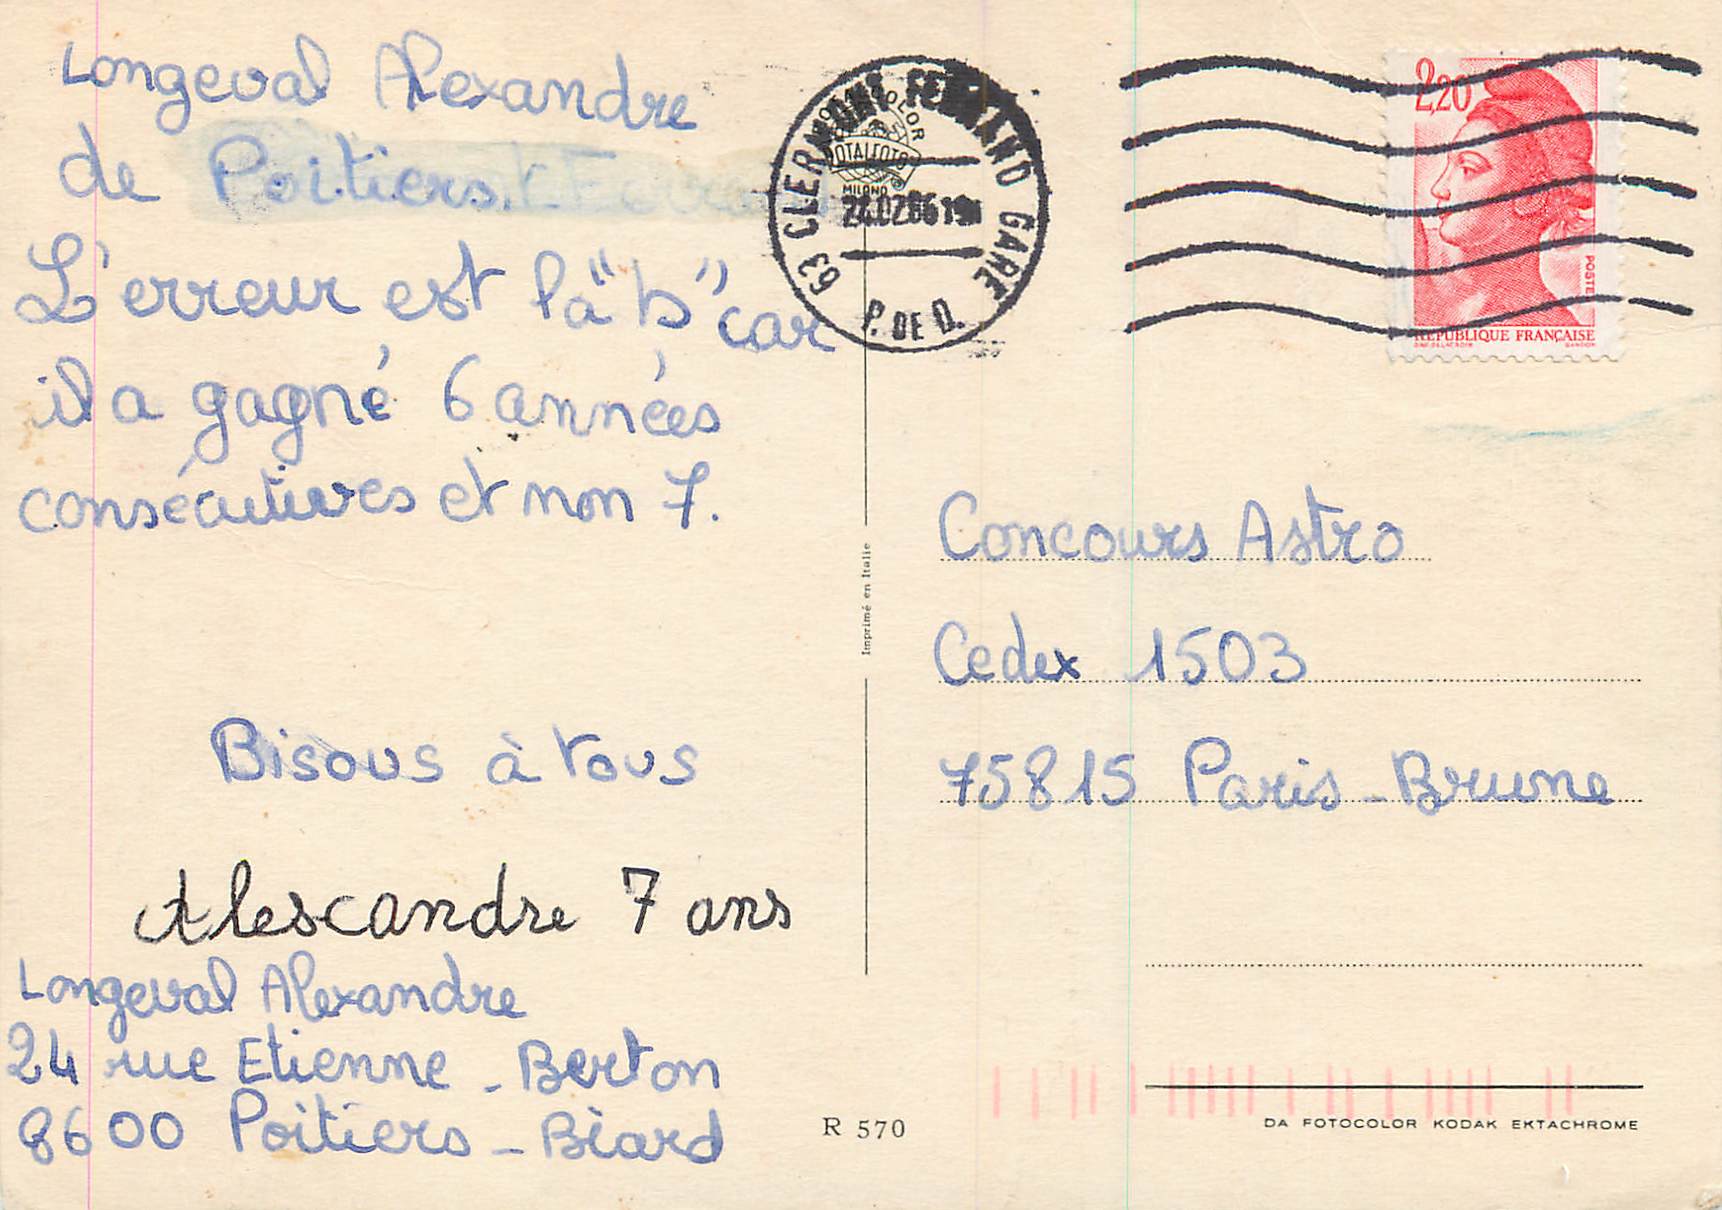 Longeval Alexandre
de Poitiers.
L'erreur est la "b" car
il a gagné 6 années
consécutives et non 7.
Bisous à tous
Alescandre 7 ans
Longeval Alexandre
24 rue Etienne - Berton
8600 Poitiers - Biard
63 CLERMONT FERRAND GARE
24.02.86 19H
P. DE D.
TOTALFOTO
MILANO
2,20
POSTES
REPUBLIQUE FRANÇAISE
Imprimé en Italie
Concours Astro
Cedex 1503
75815 Paris - Brune
R 570
DA FOTOCOLOR KODAK EKTACHROME